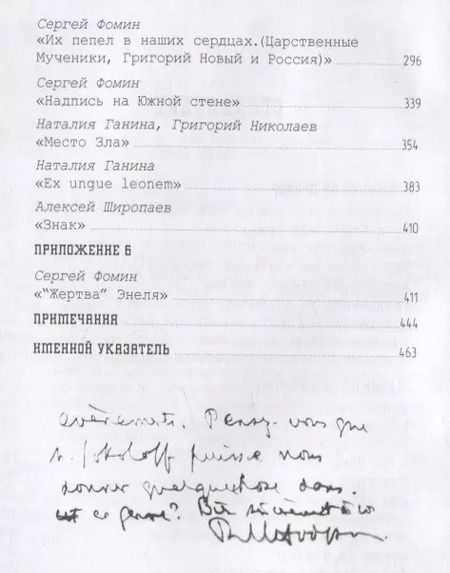 Сергей Фомин
«Их пепел в наших сердцах.(Царственные
Мученики, Григорий Новый и Россия)» 296
Сергей Фомин
«Надпись на Южной стене» 339
Наталия Ганина, Григорий Николаев
«Место Зла» 354
Наталия Ганина
«Ex ungue leonem» 383
Алексей Широпаев
«Знак» 410
ПРИЛОЖЕНИЕ 6
Сергей Фомин
«"Жертва" Энеля» 411
ПРИМЕЧАНИЯ 444
ИМЕННОЙ УКАЗАТЕЛЬ 463
Pensez-vous que
puisse nous
donner quelque chose dans
ce genre? Bien sincèrement à vous